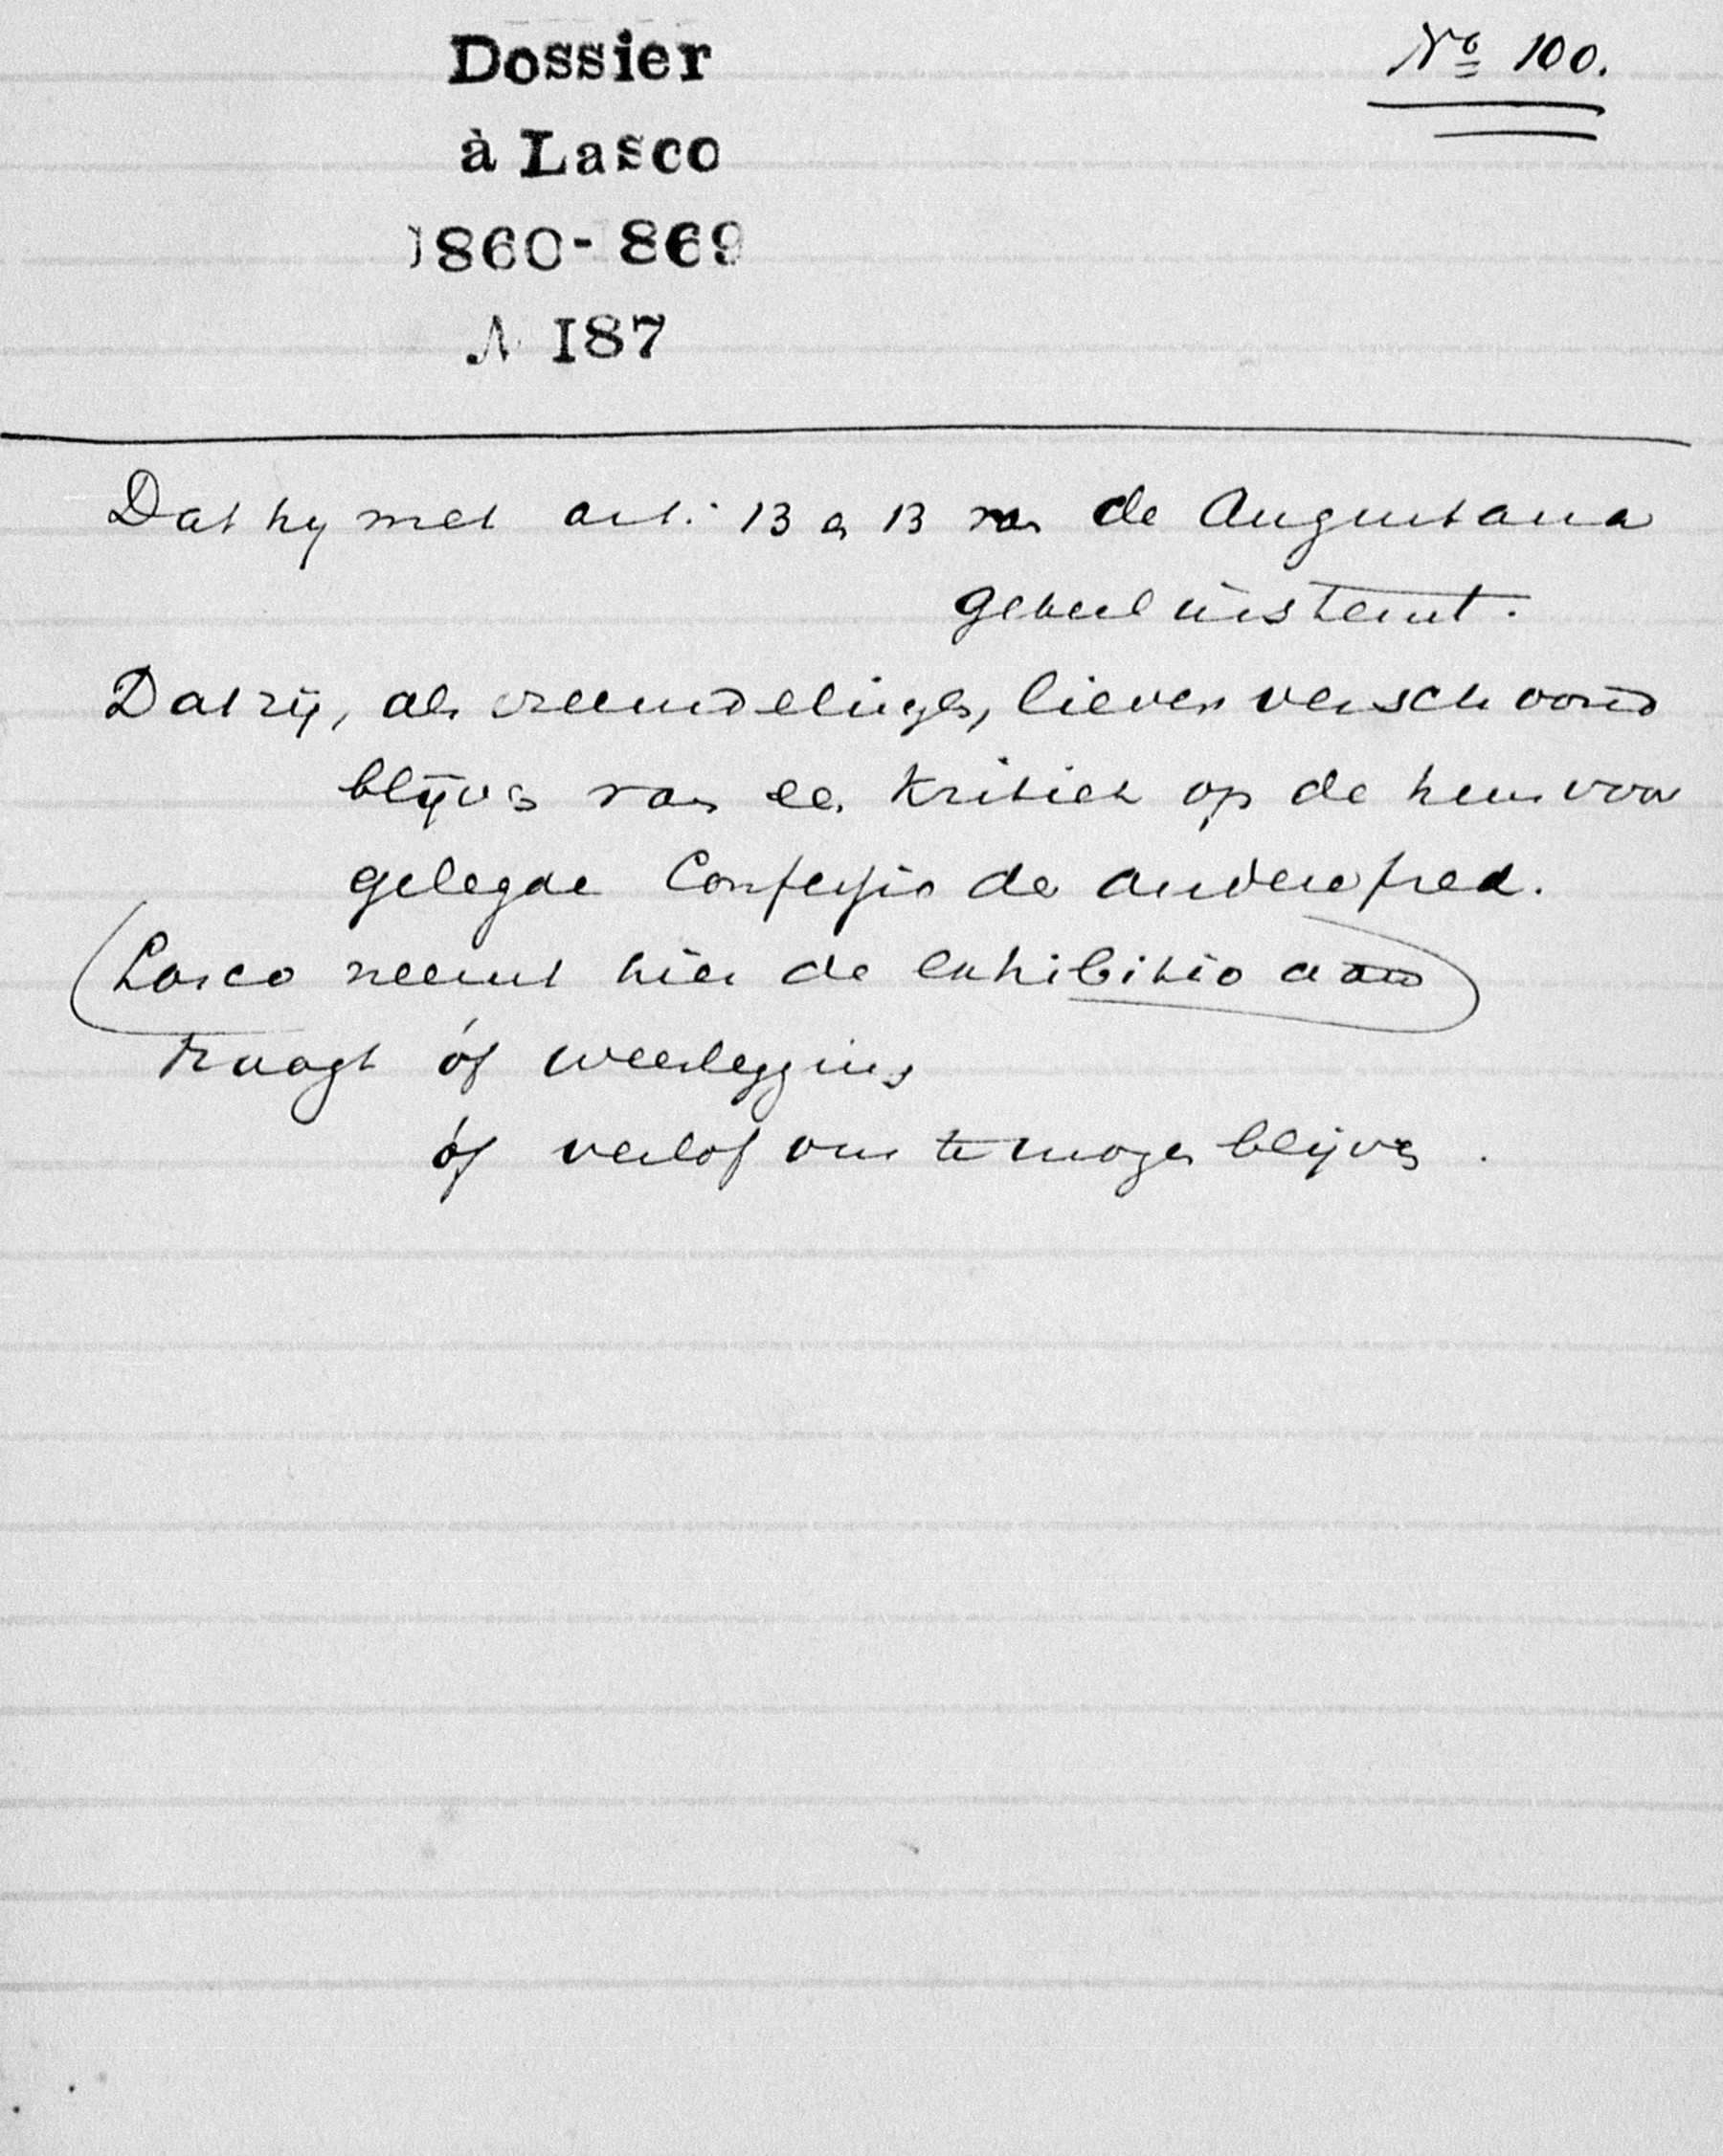 Dossier
à Lasco
1860-869
N 187
No 100.
Dat hy met art. 13 en 13 van de Augustana
geheel instemt.
Dat zij, als vreemdelingen, liever verschoond
blijven van een kritiek op de hun voor
gelegde Confessio de andere
(Lasco neemt hier de exhibitio aan)
Vraagt óf weerlegging
óf verlof om te mogen blijven.